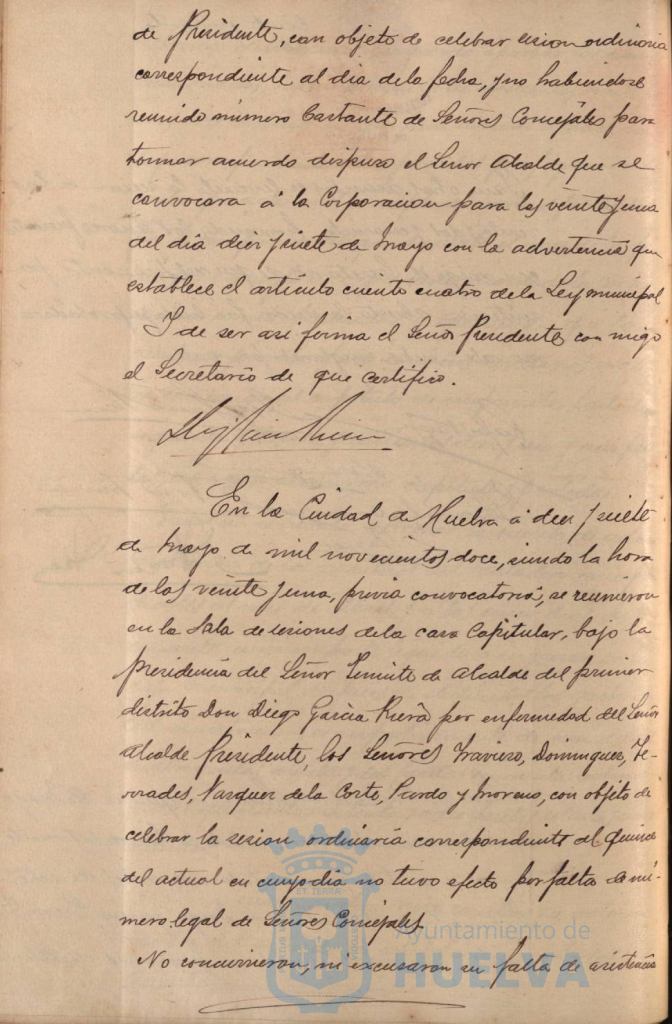 de Presidente, con objeto de celebrar sesion ordinaria
correspondiente al dia de la fecha, y no habiendose
reunido número bastante de Señores Concejales para
tomar acuerdo dispuso el Señor Alcalde que se
convocara á la Corporacion para las veinte y una
del dia diez y siete de Mayo con la advertencia que
establece el articulo ciento cuatro de la Ley municipal
Y de ser asi firma el Señor Presidente con migo
el Secretario de que certifico.
En la Ciudad de Huelva á diez y siete
de Mayo de mil novecientos doce, siendo la hora
de las veinte y una, previa convocatoria, se reunieron
en la Sala de sesiones de la casa Capitular, bajo la
presidencia del Señor Teniente de Alcalde del primer
distrito Don Diego Garcia Riera por enfermedad del Señor
Alcalde Presidente, los Señores Traviero, Dominguez,
Vazquez de la Corte, Pardo y Moreno, con objeto de
celebrar la sesion ordinaria correspondiente al quince
del actual en cuyo dia no tuvo efecto por falta de nú-
mero legal de Señores Concejales.
No concurrieron, ni excusaron su falta de asistencia
Ayuntamiento de
HUELVA